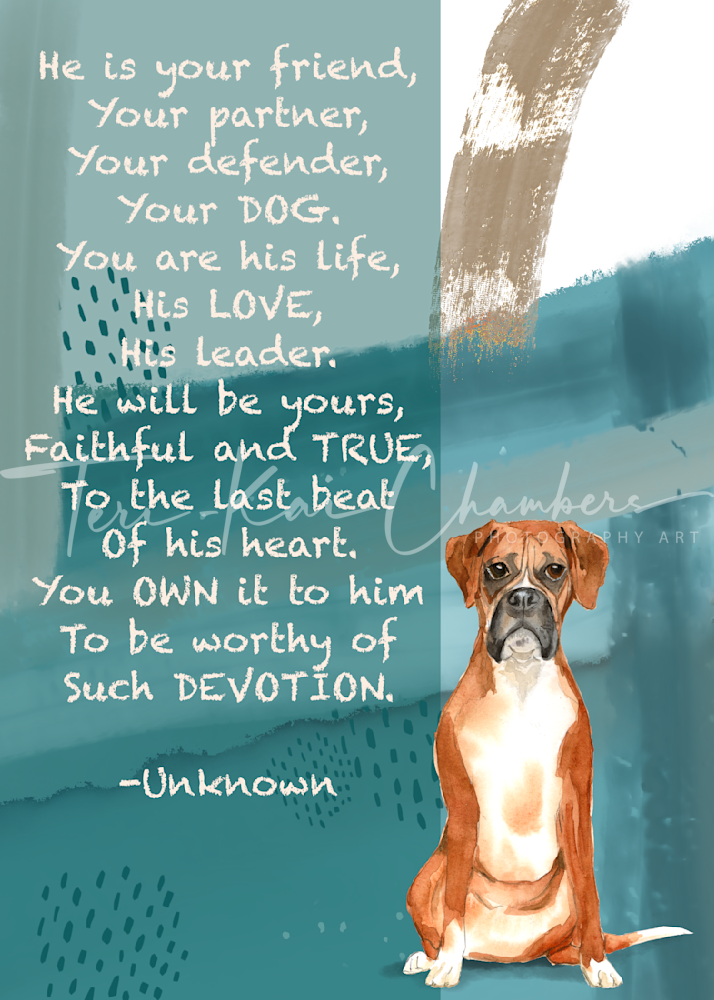 He is your friend,
Your partner,
Your defender,
Your DOG.
You are his life,
His LOVE,
His leader.
He will be yours,
Faithful and TRUE,
To the last beat
Of his heart.
You OWN it to him
To be worthy of
Such DEVOTION.
-Unknown
Teri-Kai Chambers
PHOTOGRAPHY ART